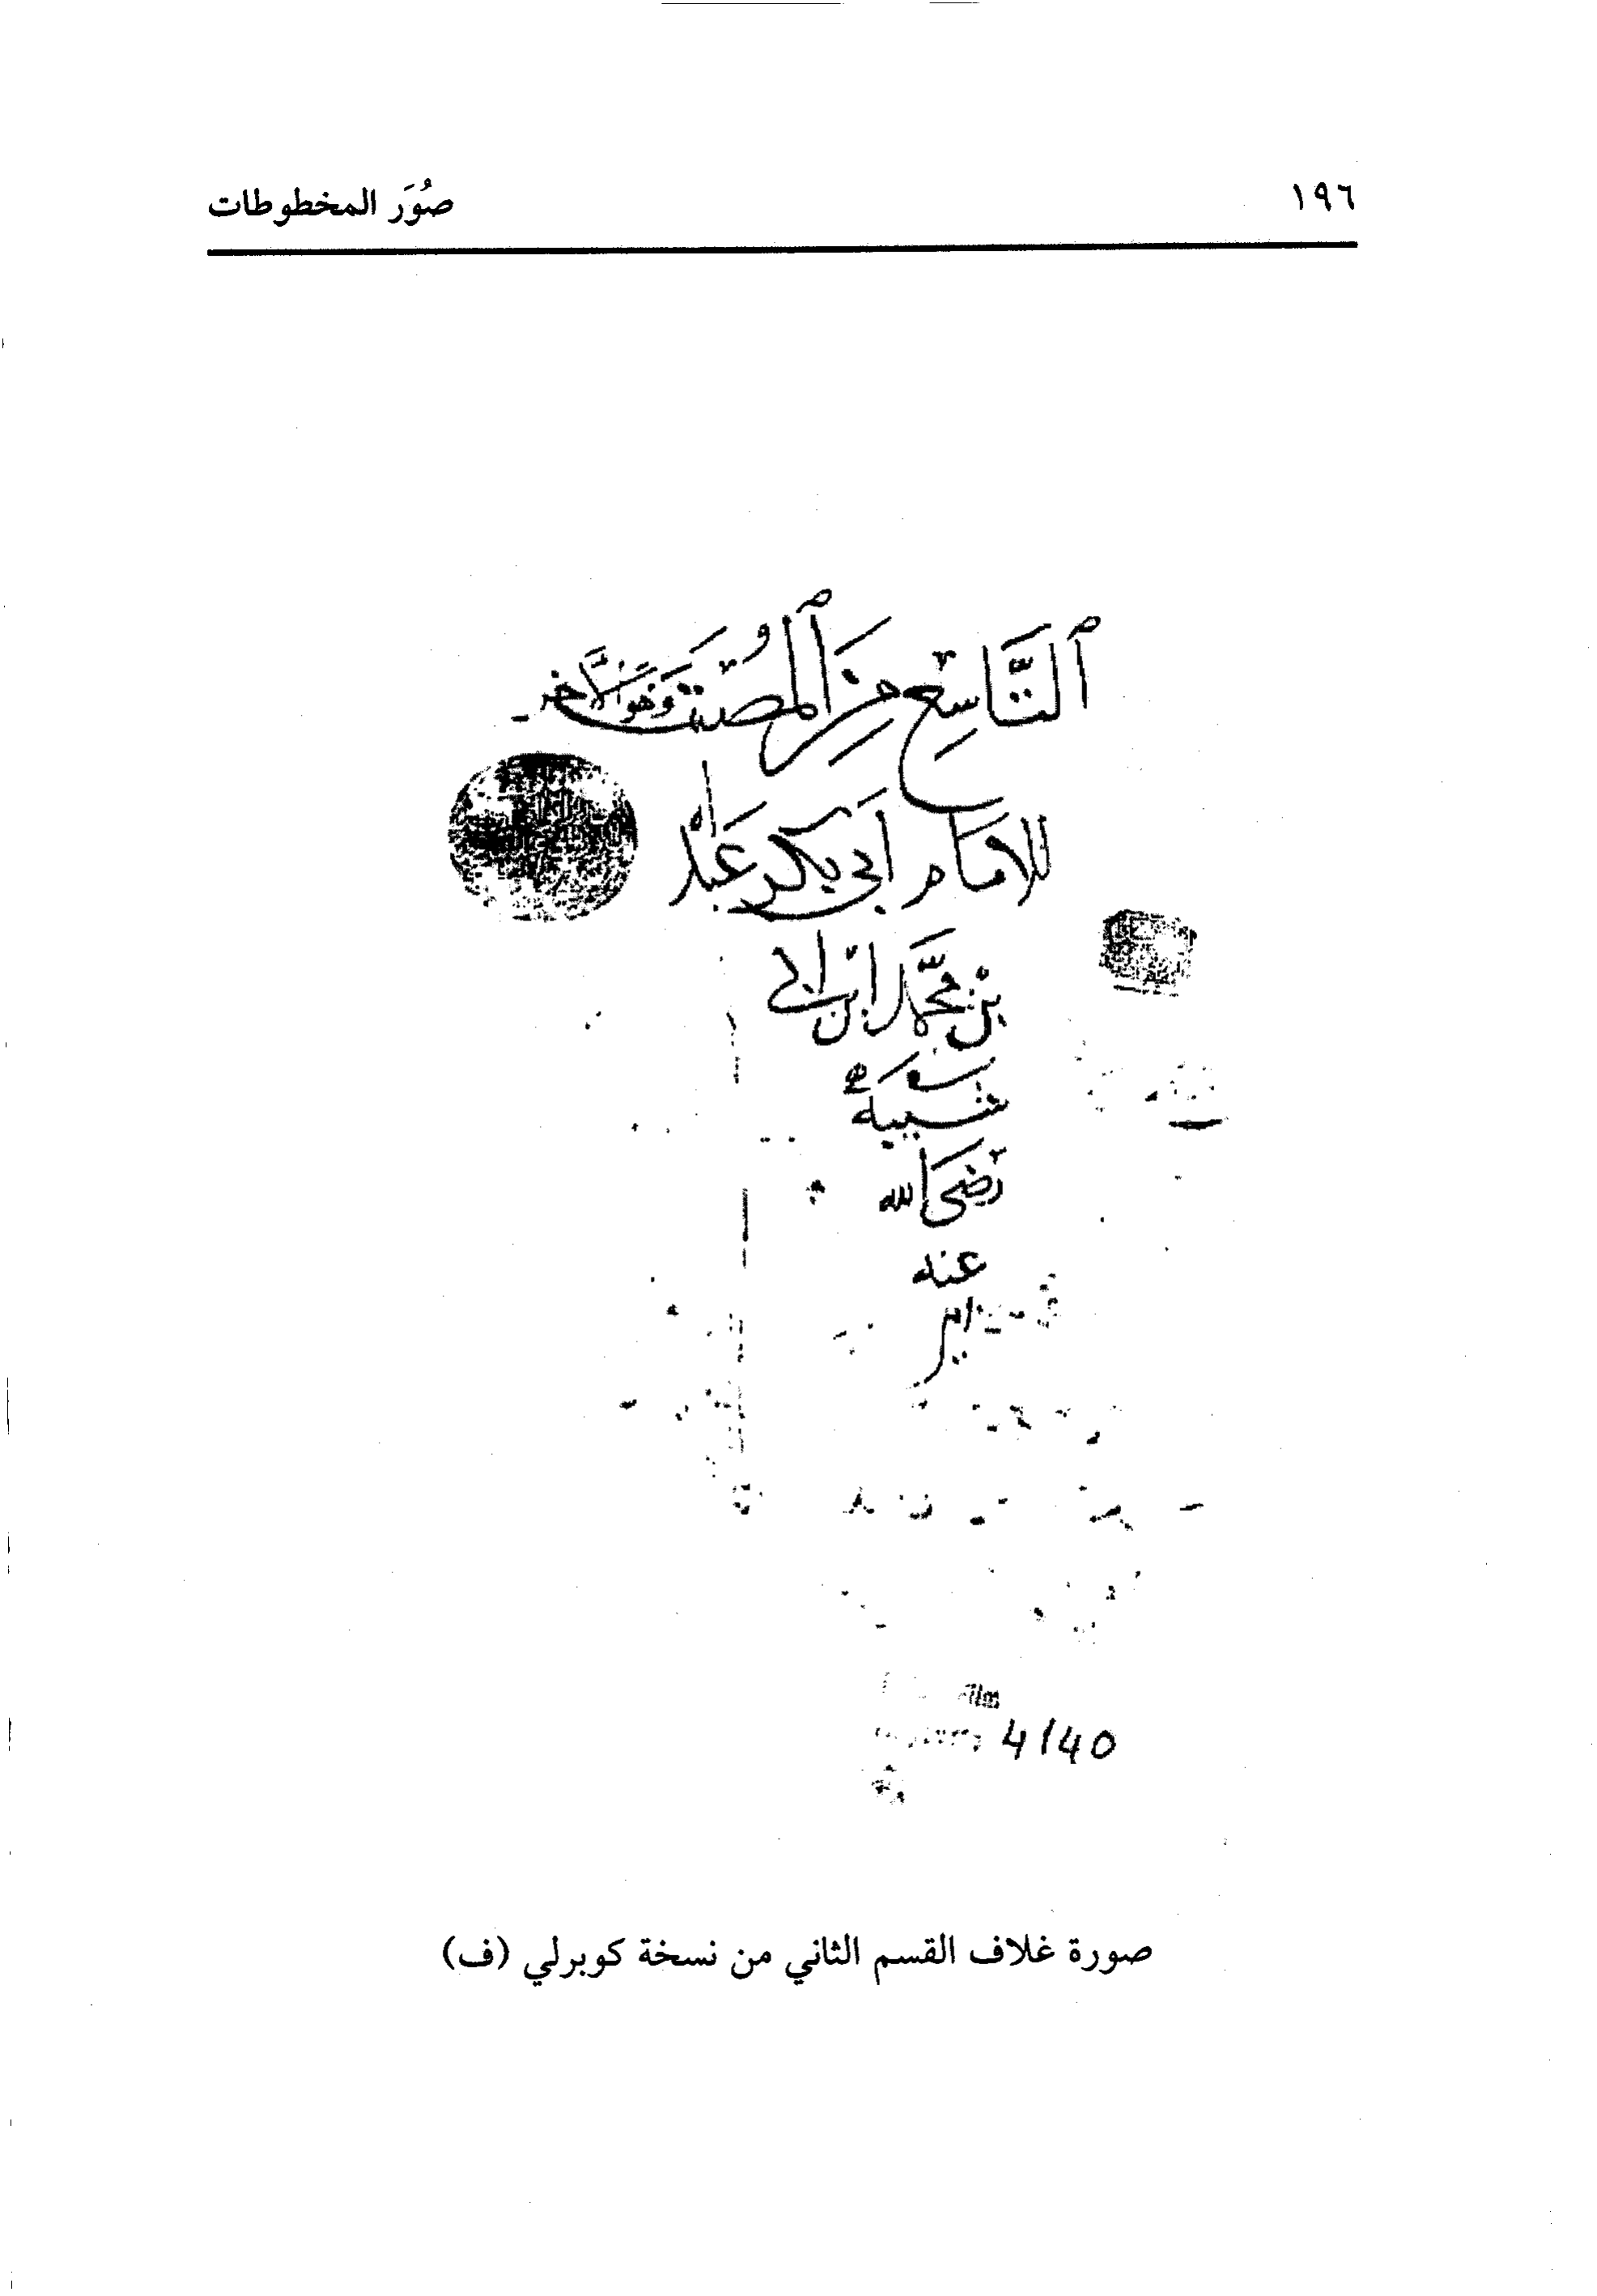 ١٩٦
صُوَر المخطوطات
ٱلتَّاسِعُ مِنَ ٱلْمُصَنَّف وَهُوَ الآخر
للامَام أَبي بكر عَبد الله
بْن محَمَّد ابن ابي
شيبَة
رَضيَ الله
عنه
Film
4140
صورة غلاف القسم الثاني من نسخة كوبرلي (ف)